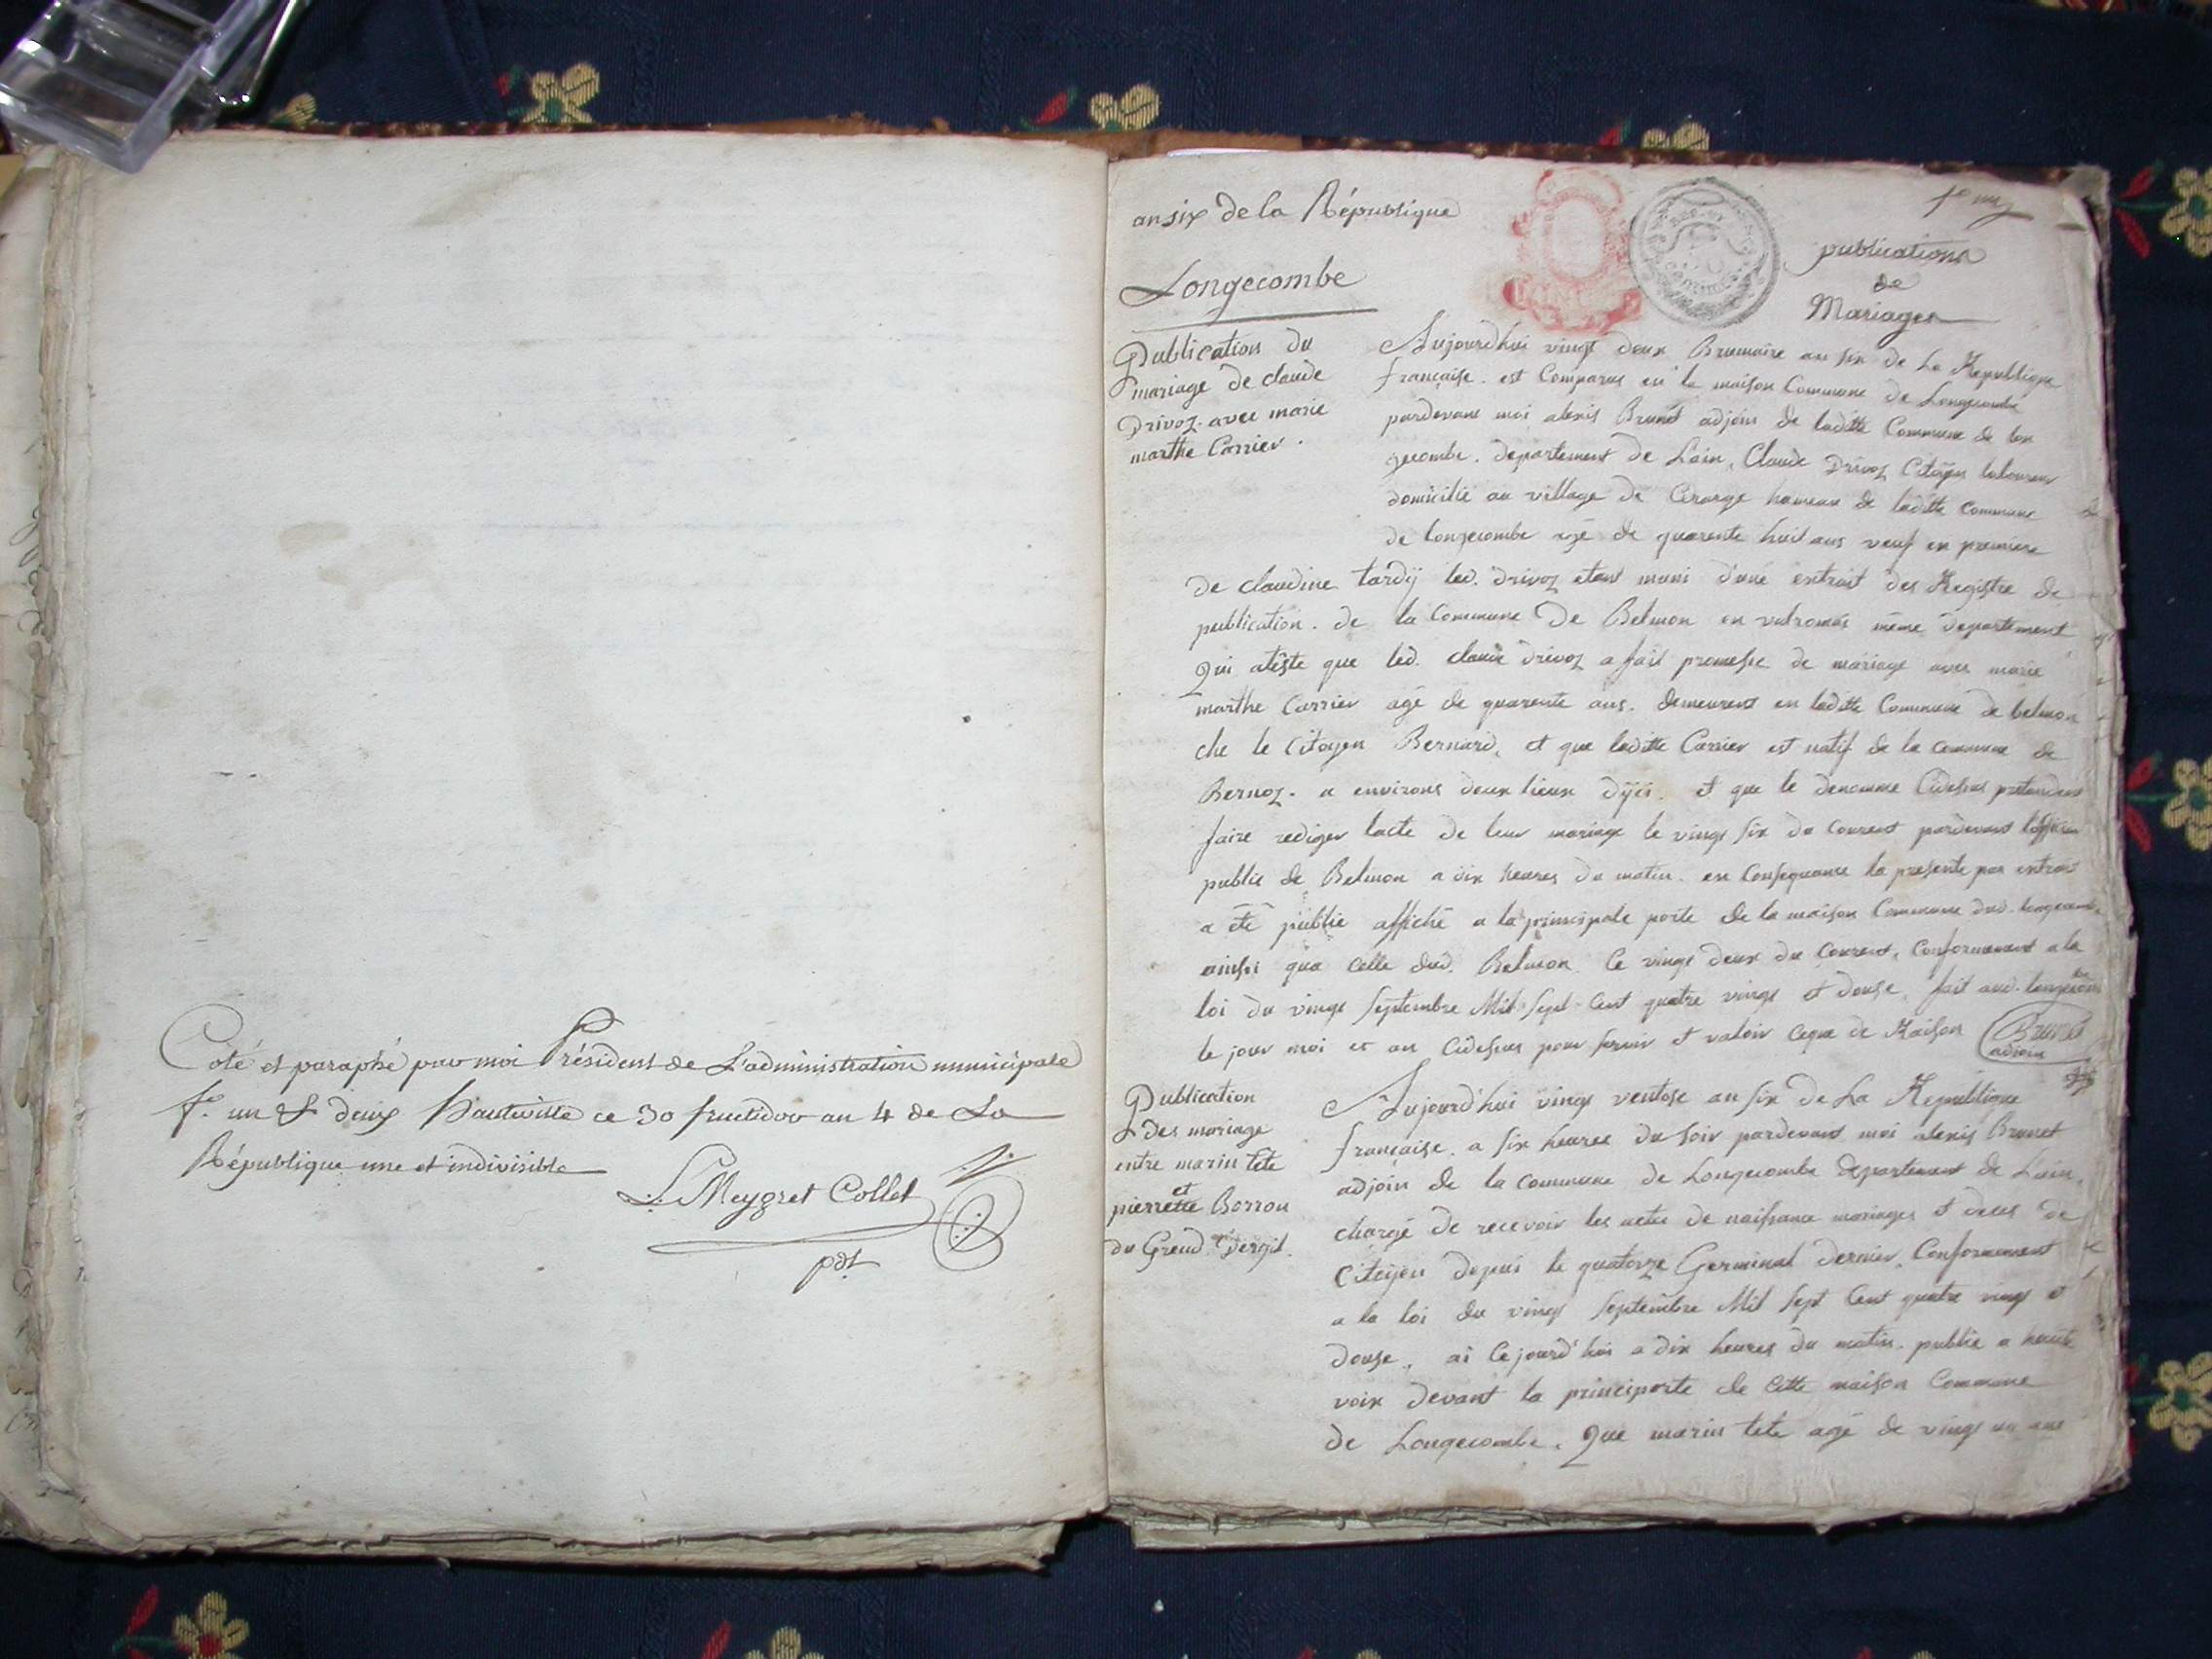 Coté et paraphé par moi Président de L'administration municipale
f.o un & deux hauteville ce 30 fructidor an 4 de La
République une et indivisible
L. Meygret Collet
pdt
an six de la République
f.o un
publications
de
Mariages
Longecombe
Publication du
mariage de claude
Drivoz avec marie
marthe Carrier.
Aujourdhui vingt deux Brumaire an six de La Republique
française. est Comparus en la maison Commune de Longecombe
pardevant moi alexis Brunet adjoin de laditte Commune de lon
gecombe. departement de Lain, Claude Drivoz Citoyen laboureur
domicilié au village de hameau de laditte commune
de longecombe agé de quarente huit ans veuf en premiere
de claudine tardÿ led. drivoz etant muni d'uné extrait des Registre de
publication. de la Commune De Belmon en valromais même departement
Qui atéste que led. claude drivoz a fait promesse de mariage avec marie
marthe Carrier agé de quarente ans. demeurent en laditte Commune de belmon
che le Citoyen Bernard, et que laditte Carrier est natif de la commune de
a environs deux lieux dÿci. et que le denomme Cidesus pretendent
faire rediger lacte de leur mariage le vingt six du Courent pardevant lofficier
public de Belmon a dix heures du matin. en Consequance la presente par extrait
a été publié affiché a la principale porte de la maison Commune dud. longecombe
ainssi qua celle dud. Belmon. le vingt deux du Courent, Conformement a la
loi du vingt septembre Mil sept Cent quatre vingt et douse, fait aud. longecombe
le jour moi et an Cidesus pour servir et valoir ceque de Raison Brunet
adjoin
Publication
des mariage
entre marin tête
et
pierrette Borron
du Grend
Aujourd'hui vingt ventose an six de La Republique
française. a six heures du soir pardevant moi alexis Brunet
adjoin de la commune de Longecombe departement de Lain,
chargé de recevoir les actes de naissance mariages et deces de
Citoyen depuis le quatorze Germinal dernier. Conformement
a la loi du vingt septembre Mil sept Cent quatre vingt et
douse, ai Cejourd'hui a dix heures du matin. publié a haute
voix devant la principorte de Cette maison Commune
de Longecombe. Que marin tête agé de vingt un ans